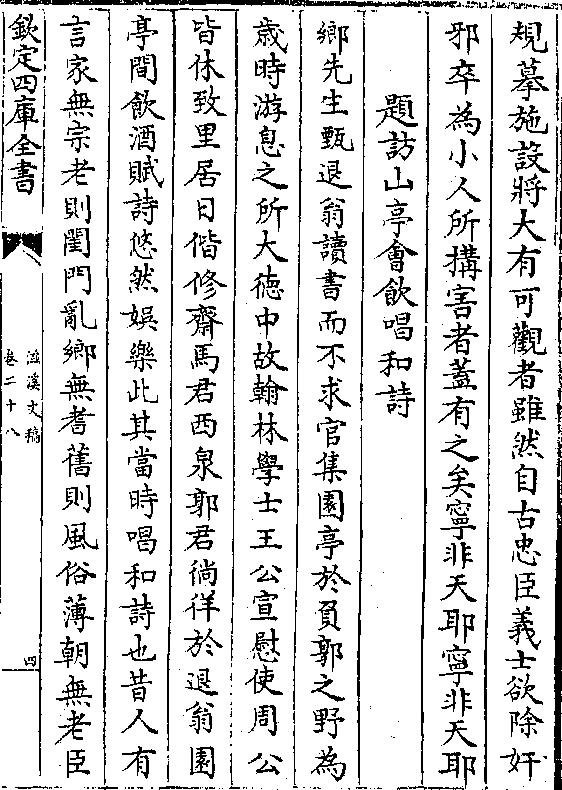 規摹施設將大有可觀者雖然自古忠臣義士欲除奸
邪卒為小人所搆害者蓋有之矣寧非天耶寧非天耶
題訪山亭會飲唱和詩
鄉先生甄退翁讀書而不求官集園亭於負郭之野為
歳時游息之所大徳中故翰林學士王公宣慰使周公
皆休致里居日偕修齋馬君西泉郭君徜徉於退翁園
亭間飲酒賦詩悠然娯樂此其當時唱和詩也昔人有
言家無宗老則閨門亂鄉無耆舊則風俗薄朝無老臣
欽定四庫全書
滋溪文稿
卷二十八
四